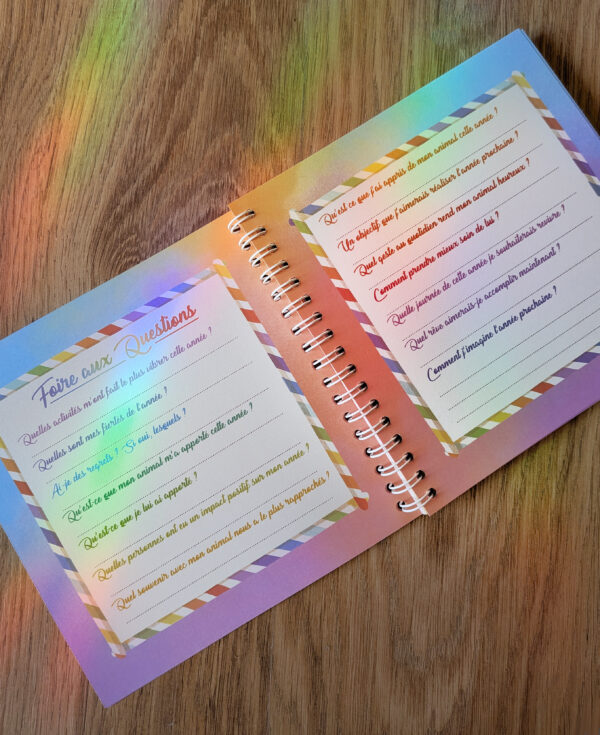 Foire aux Questions
Quelles activités m'ont fait le plus vibrer cette année ?
Quelles sont mes fiertés de l'année ?
Ai-je des regrets ? Si oui, lesquels ?
Qu'est-ce que mon animal m'a apporté cette année ?
Qu'est-ce que je lui ai apporté ?
Quelles personnes ont eu un impact positif sur mon année ?
Quel souvenir avec mon animal nous a le plus rapprochés ?
Qu'est ce que j'ai appris de mon animal cette année ?
Un objectif que j'aimerais réaliser l'année prochaine ?
Quel geste au quotidien rend mon animal heureux ?
Comment prendre mieux soin de lui ?
Quelle journée de cette année je souhaiterais revivre ?
Quel rêve aimerais-je accomplir maintenant ?
Comment j'imagine l'année prochaine ?